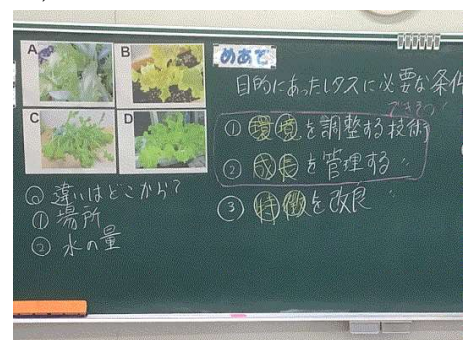 A
B
C
D
◎ 違いはどこから?
① 場所
② 水の量
めあて
目的にあったレタスに必要な条件
できそう
① 環境を調整する技術
② 成長を管理する 〃
③ 特徴を改良 〃